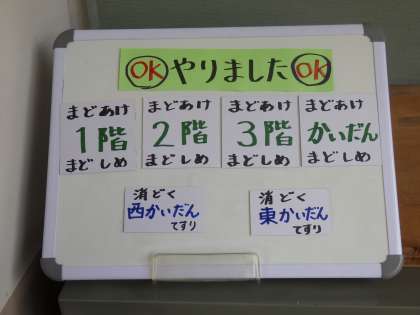 OK やりました OK
まどあけ
1階
まどしめ
まどあけ
2階
まどしめ
まどあけ
3階
まどしめ
まどあけ
かいだん
まどしめ
消どく
西かいだん
てすり
消どく
東かいだん
てすり